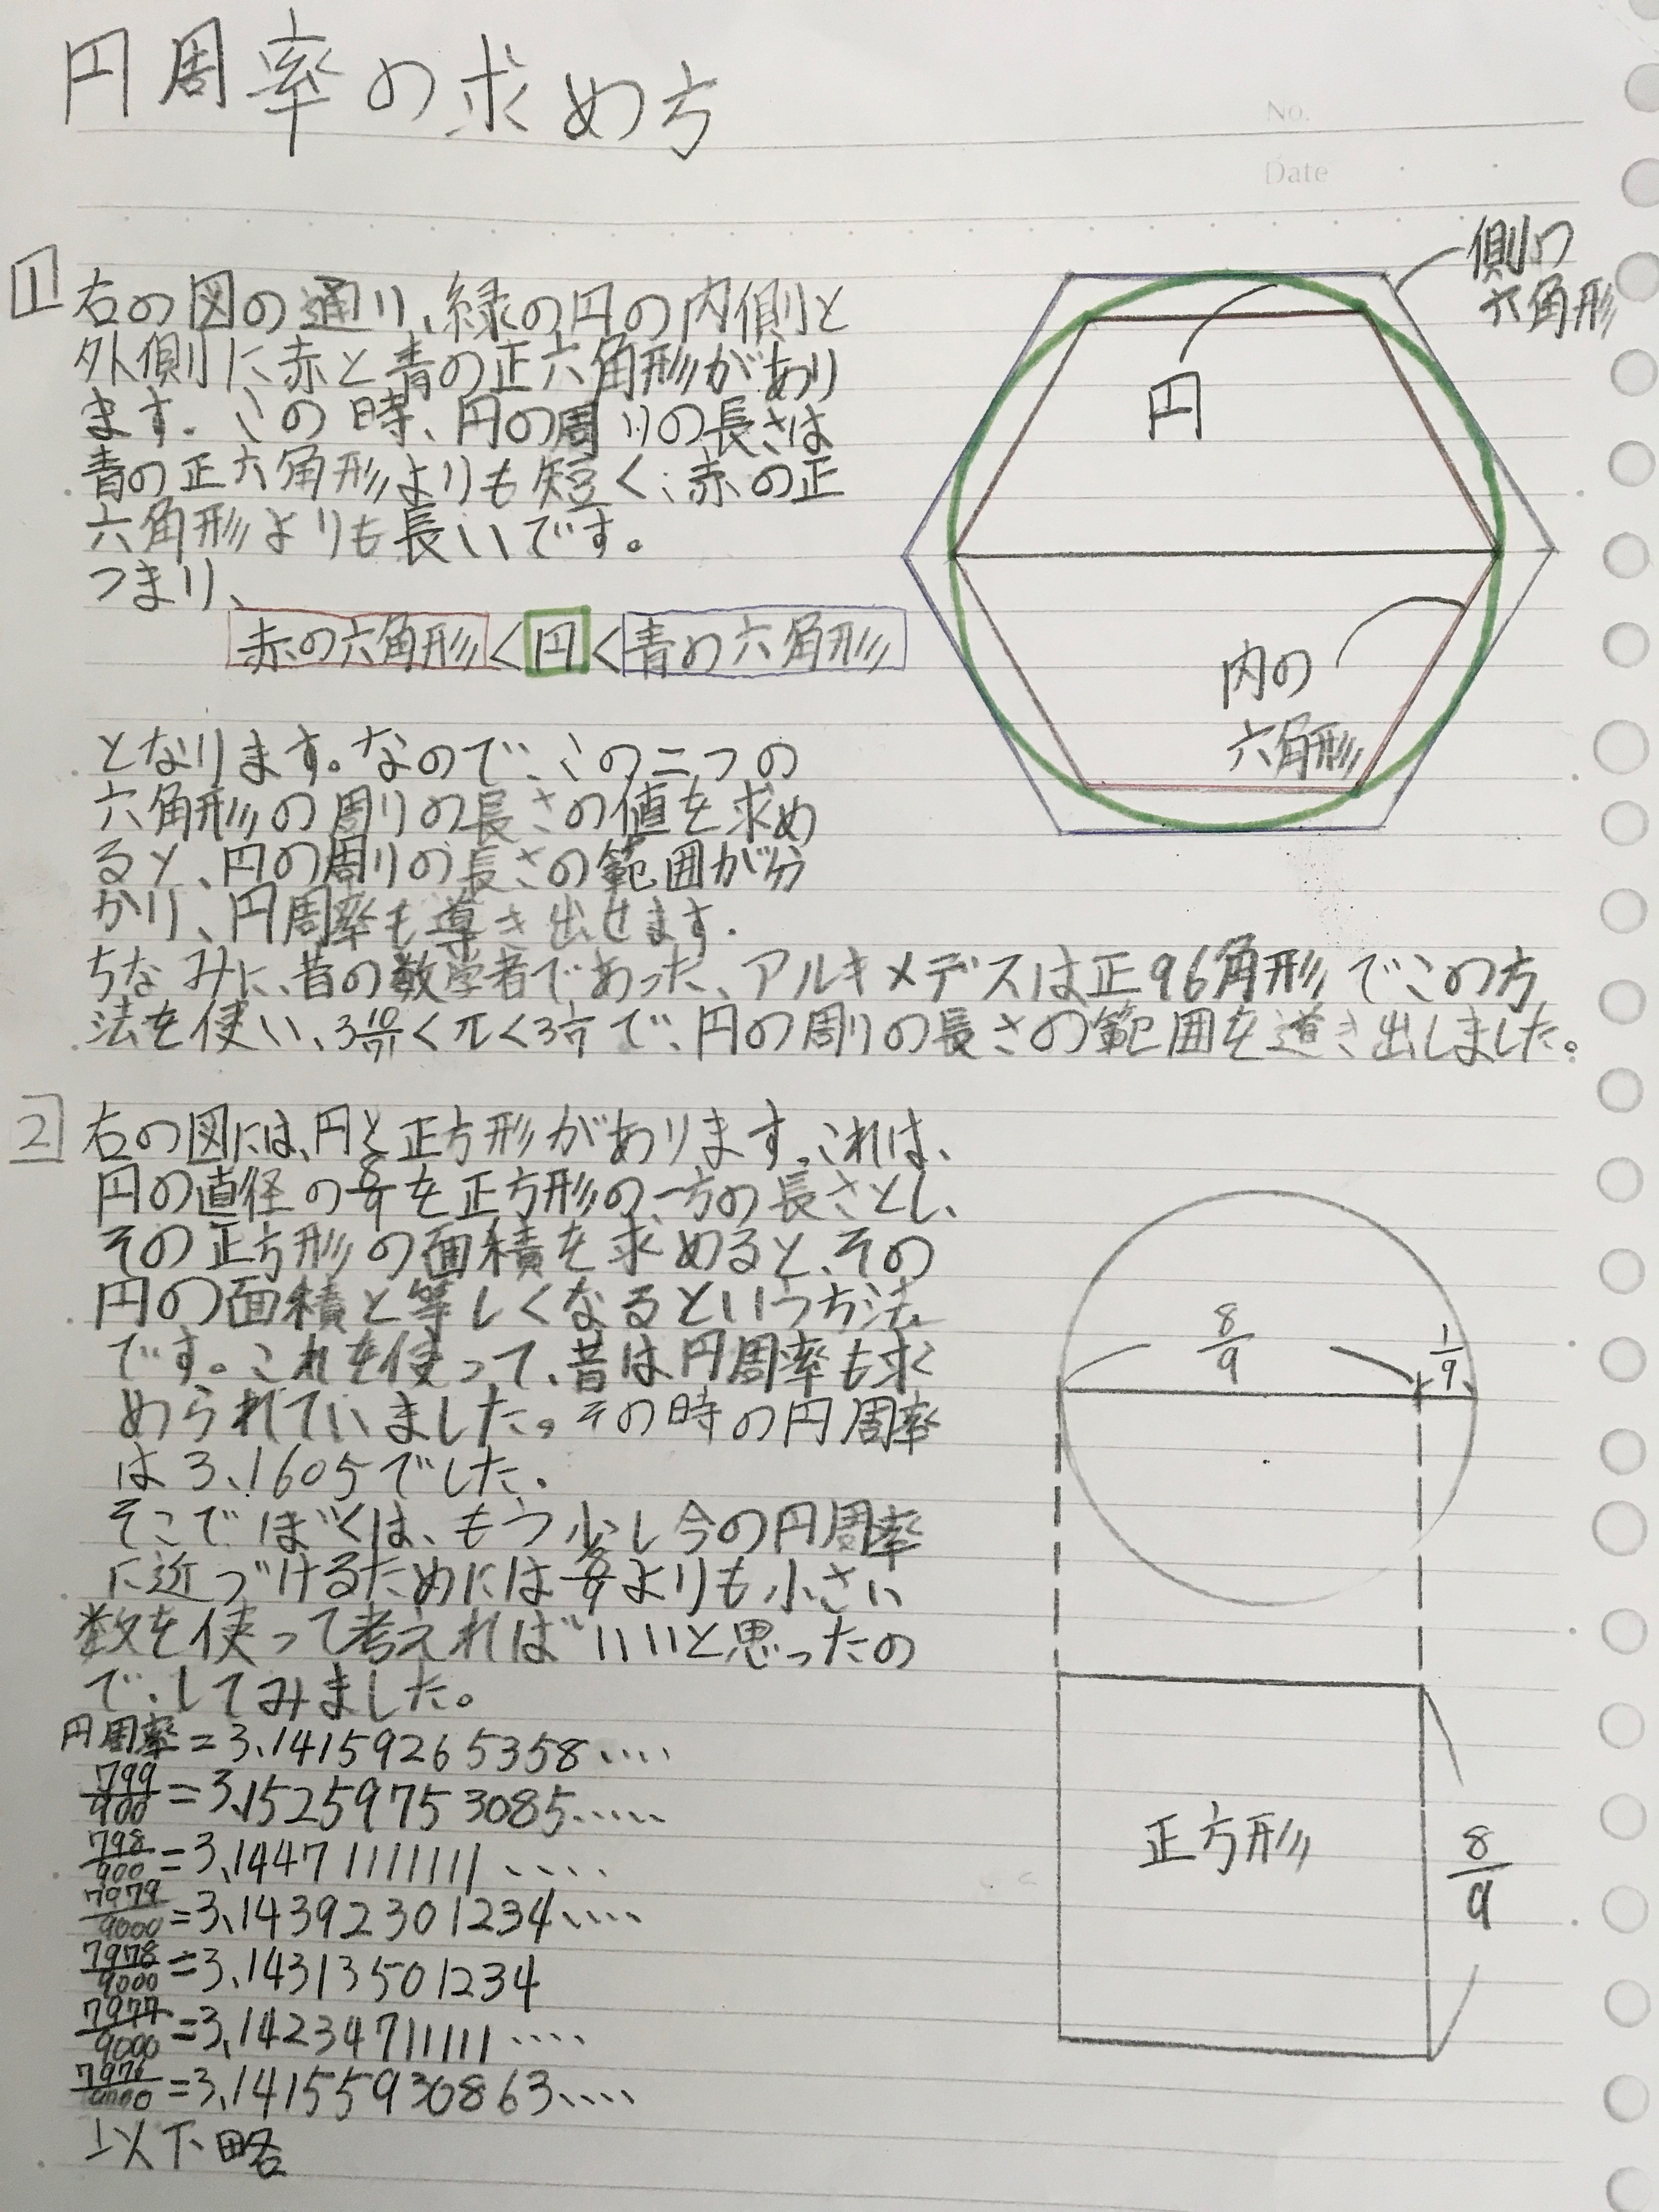 円周率の求め方
No.
Date
1 右の図の通り、緑の円の内側と
外側に赤と青の正六角形があり
ます。この時、円の周りの長さは
青の正六角形よりも短く、赤の正
六角形よりも長いです。
つまり、
赤の六角形<円<青の六角形
側の
六角形
円
内の
六角形
となります。なので、この二つの
六角形の周りの長さの値を求め
ると、円の周りの長さの範囲が分
かり、円周率も導き出せます。
ちなみに、昔の数学者であった、アルキメデスは正96角形でこの方
法を使い、3 10/71<π<3 1/7で、円の周りの長さの範囲を導き出しました。
2 右の図には、円と正方形があります。これは、
円の直径の8/9を正方形の一方の長さとし、
その正方形の面積を求めると、その
円の面積と等しくなるという方法
です。これを使って、昔は円周率も求
められていました。その時の円周率
は3.1605でした。
そこでぼくは、もう少し今の円周率
に近づけるためには8/9よりも小さい
数を使って考えればいいと思ったの
で、してみました。
円周率=3.14159265358....
799/900=3.1525975 3085.....
798/900=3.14471111111....
7979/9000=3.14392301234....
7978/9000=3.14313501234
7977/9000=3.14234711111....
7976/9000=3.14155930863....
以下略
8/9
1/9
正方形
8/9